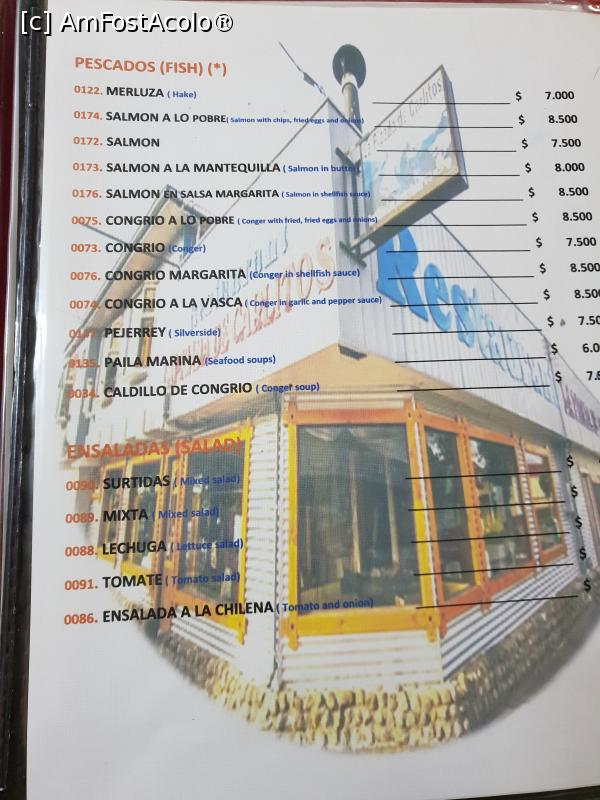 [c] AmFostAcolo®
PESCADOS (FISH) (*)
0122. MERLUZA ( Hake) $ 7.000
0174. SALMON A LO POBRE( Salmon with chips, fried eggs and onions) $ 8.500
0172. SALMON $ 7.500
0173. SALMON A LA MANTEQUILLA ( Salmon in butter) $ 8.000
0176. SALMON EN SALSA MARGARITA ( Salmon in shellfish sauce) $ 8.500
0075. CONGRIO A LO POBRE ( Conger with fried, fried eggs and onions) $ 8.500
0073. CONGRIO (Conger) $ 7.500
0076. CONGRIO MARGARITA (Conger in shellfish sauce) $ 8.500
0074. CONGRIO A LA VASCA ( Conger in garlic and pepper sauce) $ 8.50
PEJERREY ( Silverside) $ 7.50
0135. PAILA MARINA (Seafood soups) $ 6.0
0034. CALDILLO DE CONGRIO ( Conger soup) $ 7.
ENSALADAS (SALAD)
0090. SURTIDAS ( Mixed salad) $
0089. MIXTA ( Mixed salad) $
0088. LECHUGA ( Lettuce salad) $
0091. TOMATE ( Tomato salad) $
0086. ENSALADA A LA CHILENA ( Tomato and onion) $
Restaurant
CARLITOS